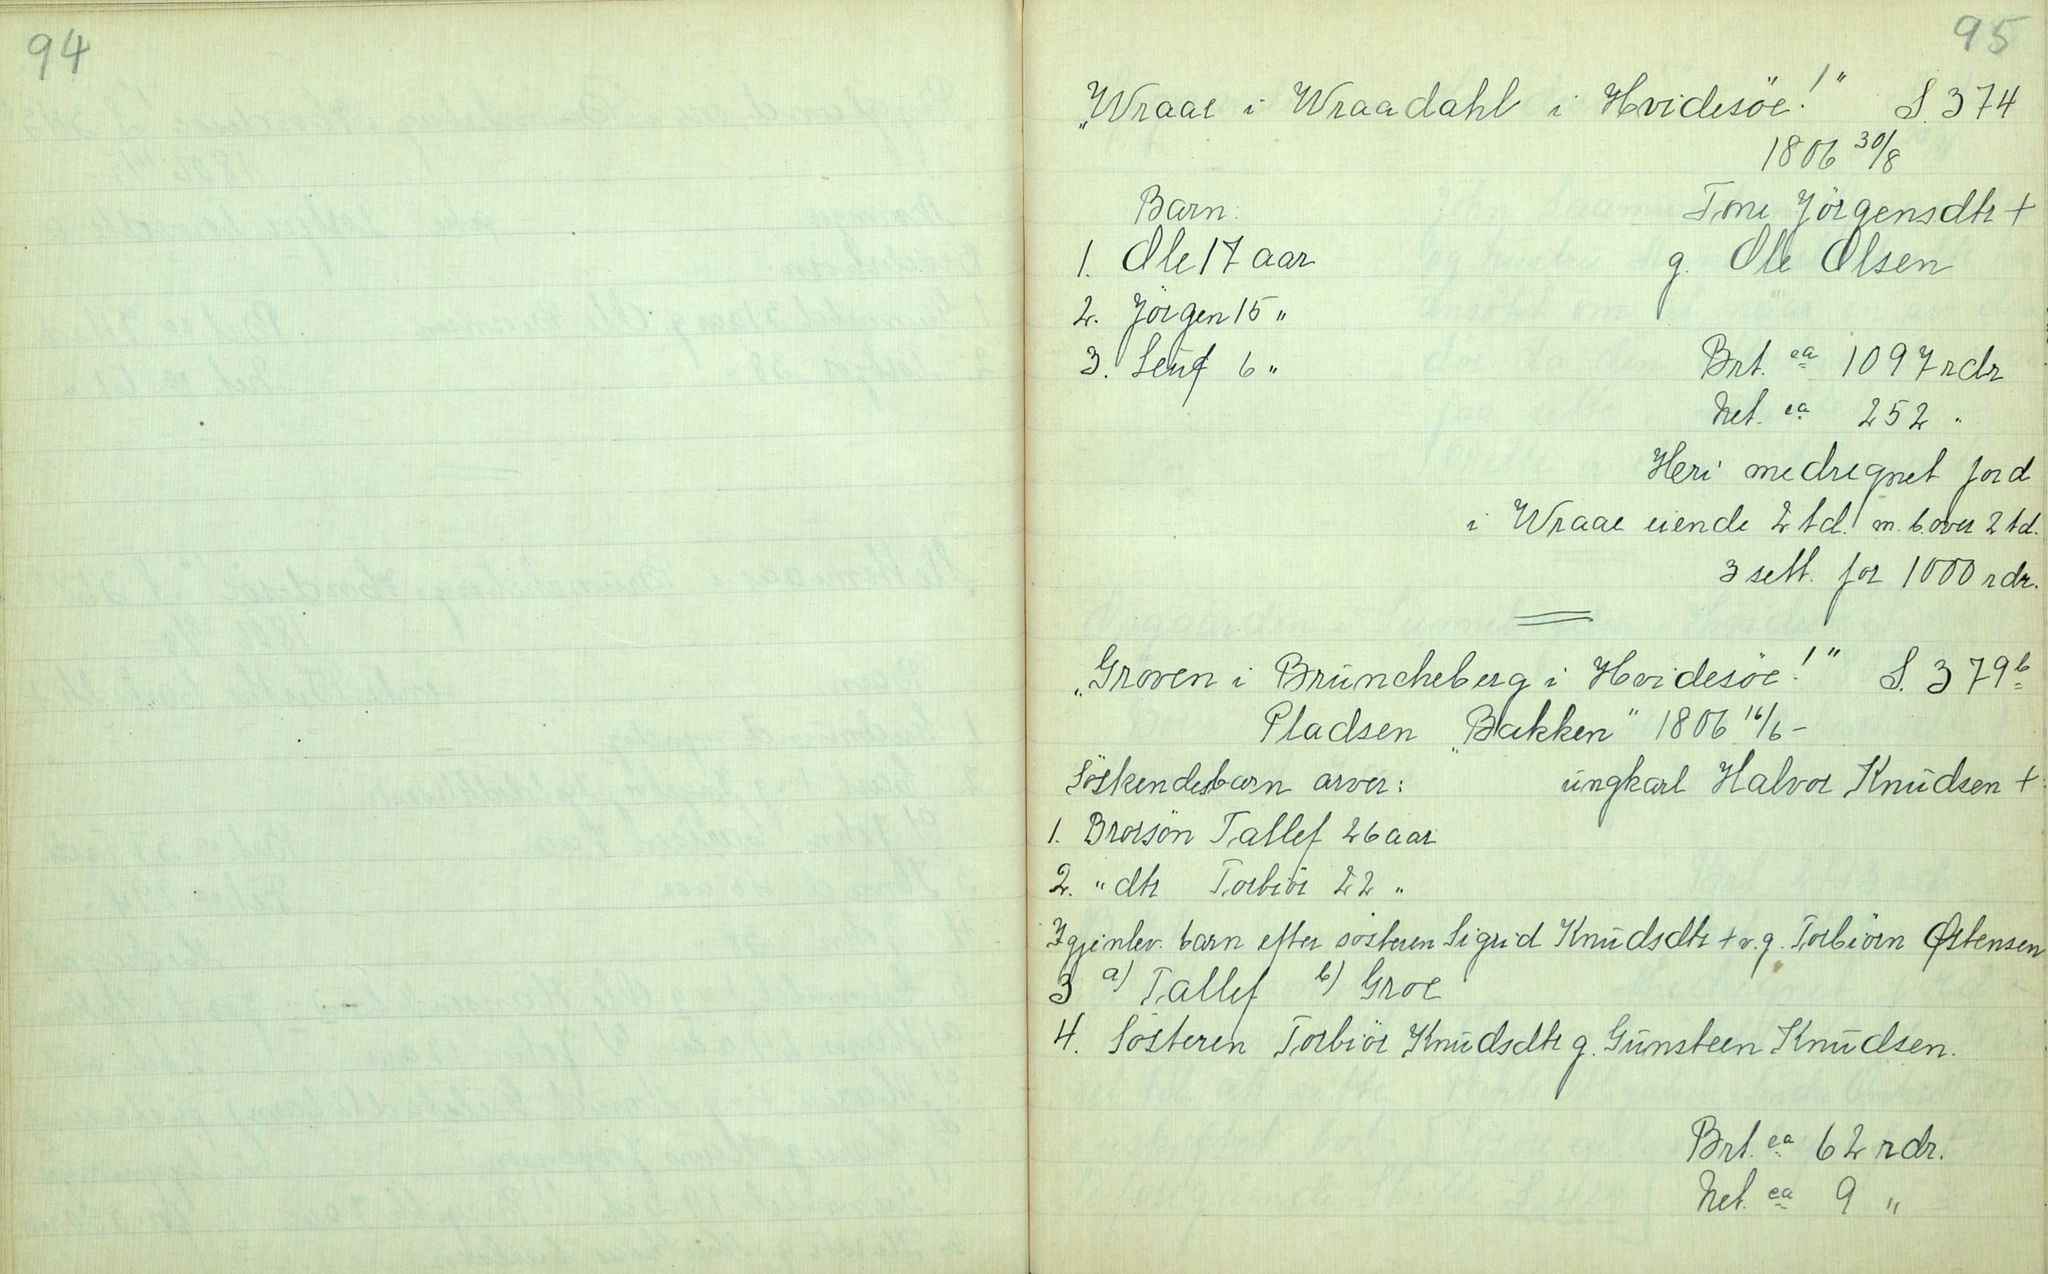 94
95
„Wraae i Wraadahl i Hvidesöe!" S. 374
1806 30/8
Barn: Tone Jörgensdtr +
1. Ole 17 aar g. Ole Olsen
2. Jörgen 15 „
3. Leuf 6 „ Brt. ca 1097 rdr
Net. ca 252 „
Heri medregnet jord
i Wraae eiende 2 td. m. b. over 2 td.
3 sett. for 1000 rdr.
„Groven i Bruncheberg i Hvidesöe!" S. 379b
Pladsen „Bakken" 1806 16/6 –
Söskendebarn arver: ungkarl Halvor Knudsen +
1. Brorsön Tallef 26 aar
2. „ dtr Torbiör 22 „
Igjenlev. barn efter sösteren Sigrid Knudsdtr + v. g. Torbiörn Östensen
3 a) Tallef b) Groe
4. Sösteren Torbiör Knudsdtr g. Gunsteen Knudsen.
Brt. ca 62 rdr.
Net. ca 9 „